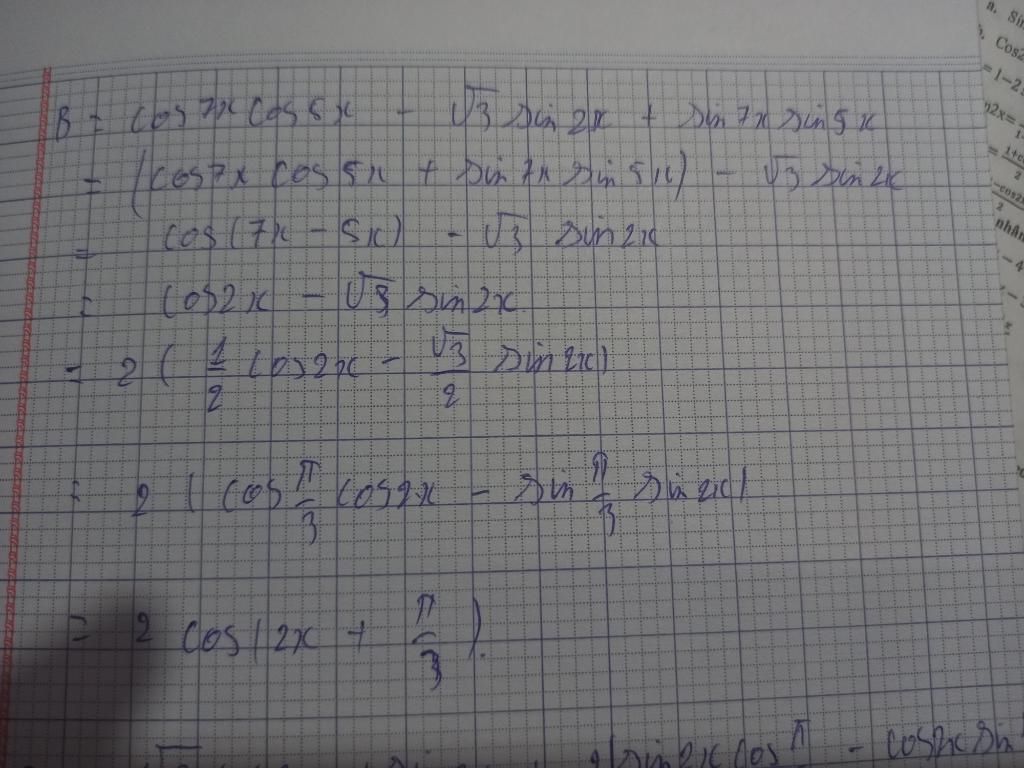 B = cos7x cos5x - √3 sin2x + sin7x sin5x
= (cos7x cos5x + sin7x sin5x) - √3 sin2x
= cos(7x - 5x) - √3 sin2x
= cos2x - √3 sin2x.
= 2 ( 1/2 cos2x - √3/2 sin2x)
= 2 ( cos π/3 cos2x - sin π/3 sin2x)
= 2 cos(2x + π/3).
2(sin2x cos π - cos2x sin
a. Sin
Cos2
= 1-2s